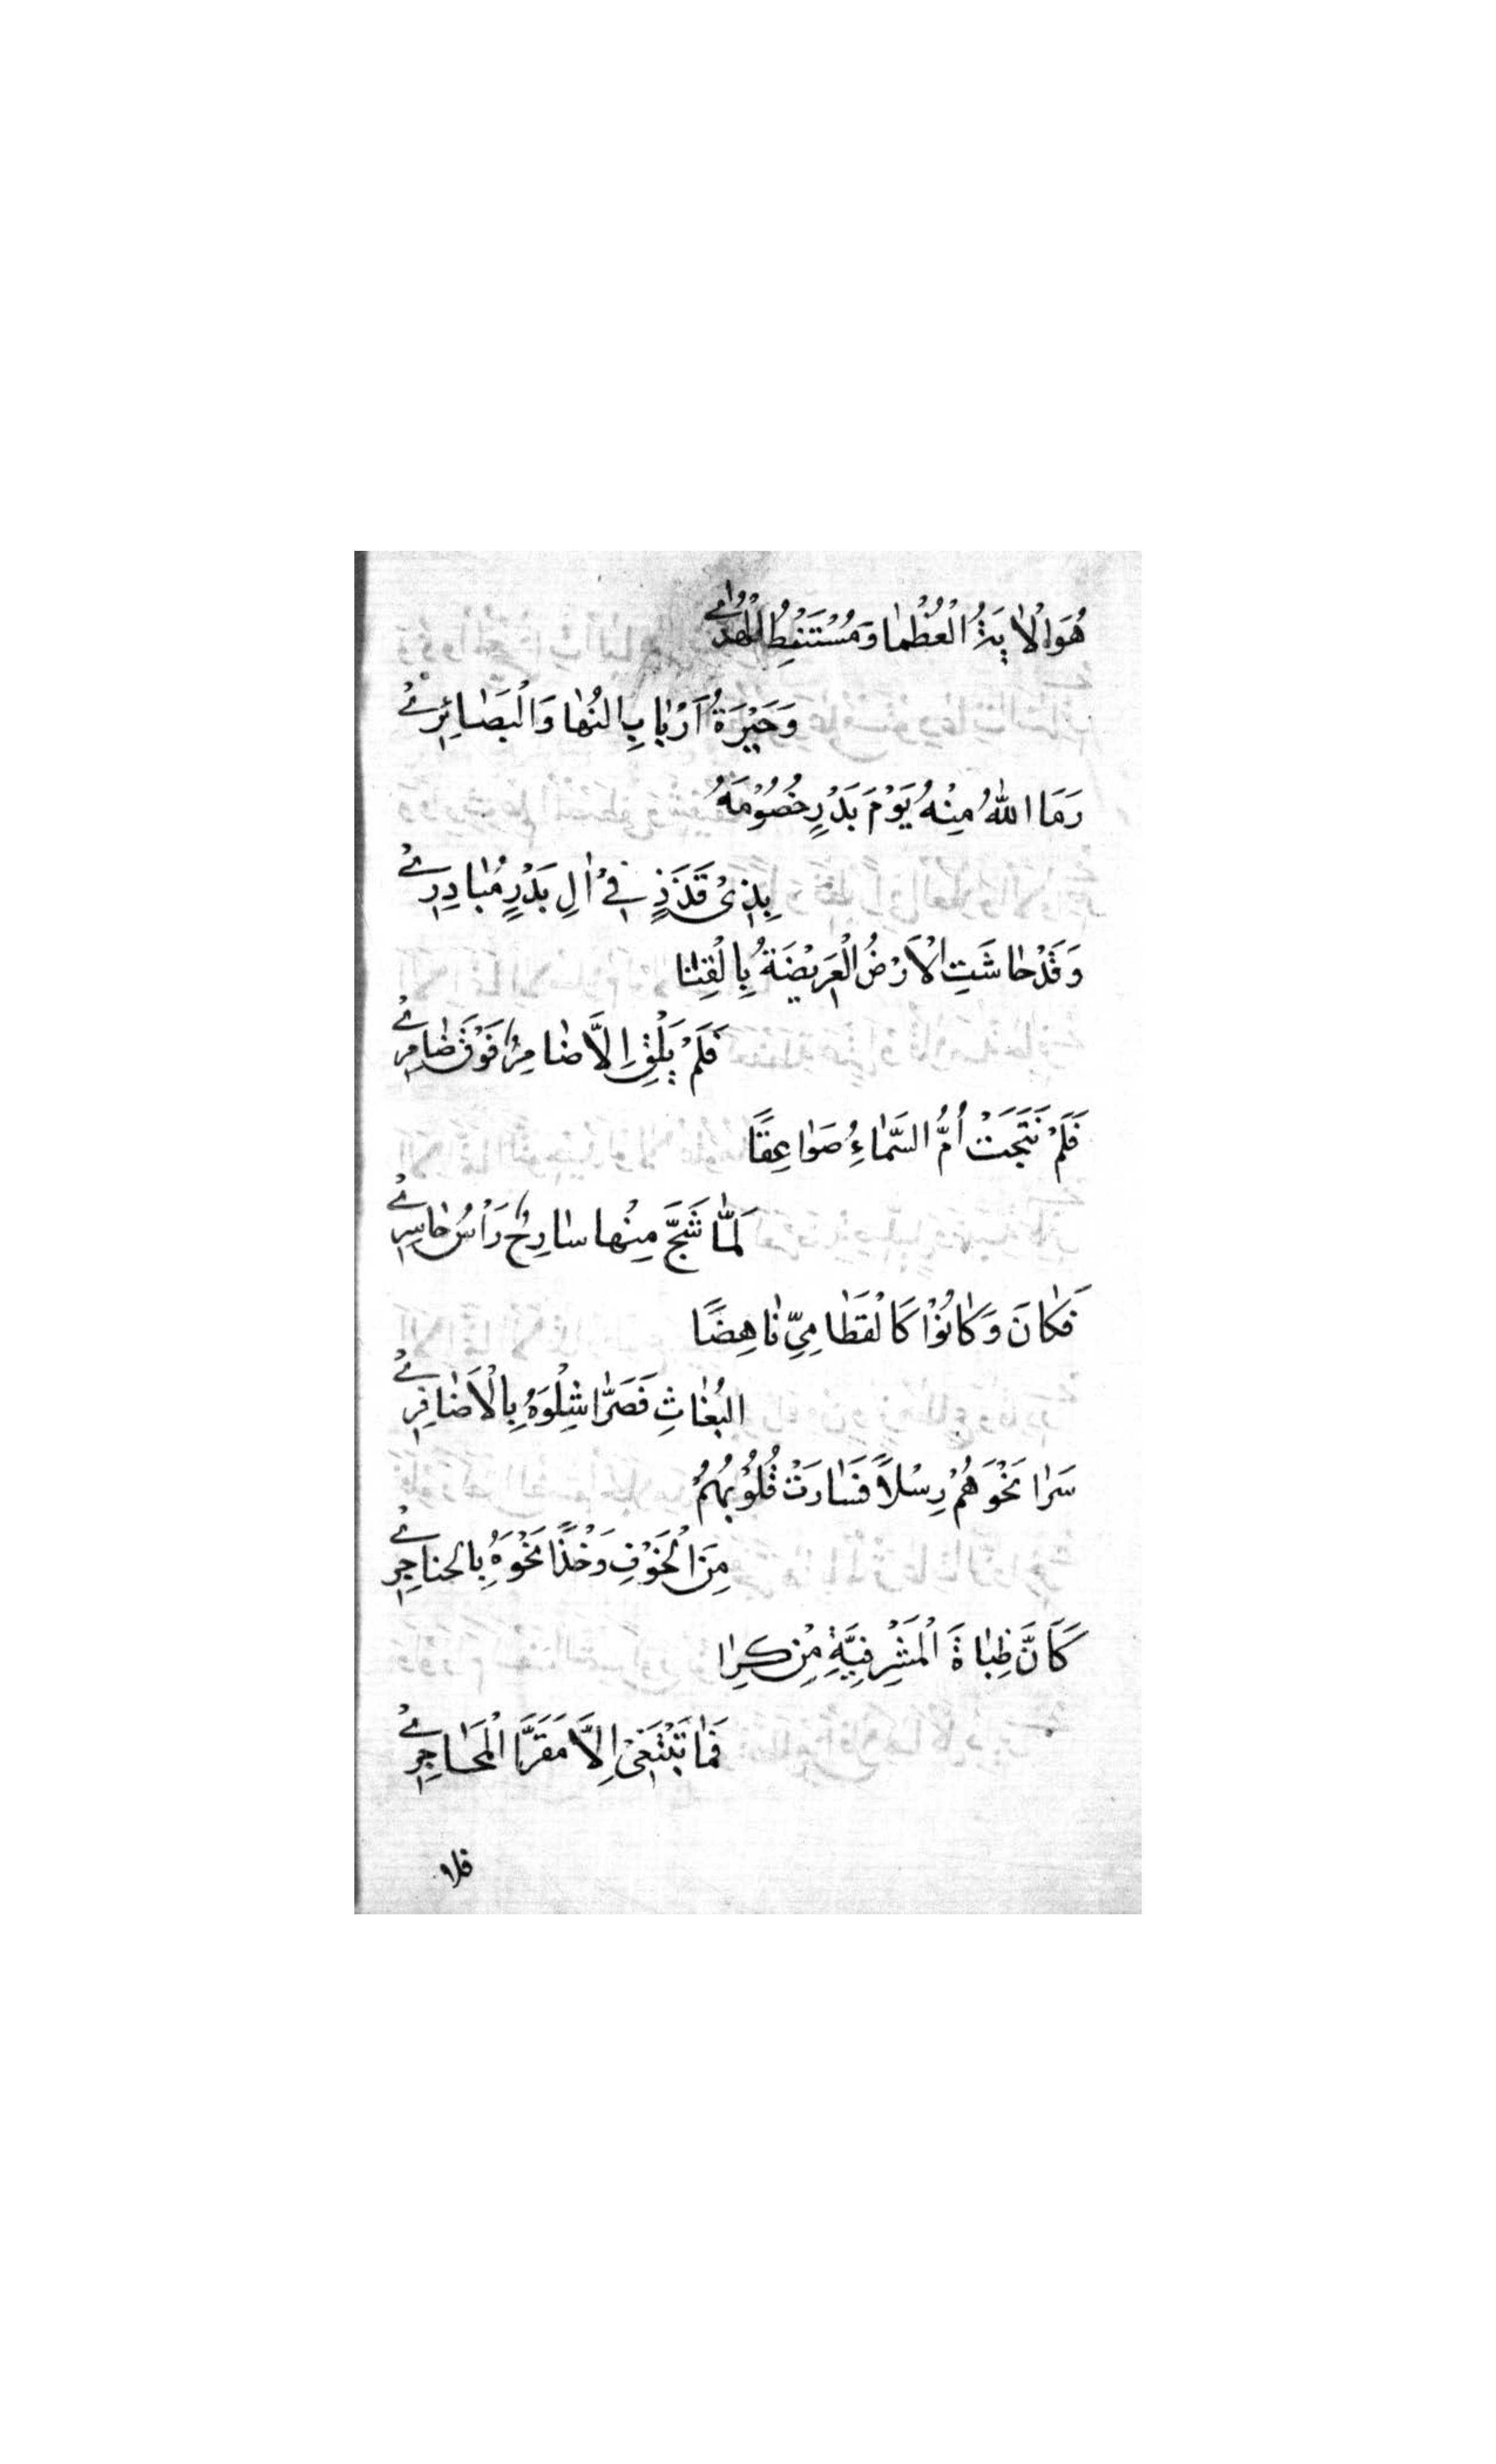 هُوَ الْاٰيَةُ الْعُظْمٰا وَمُسْتَنْبِطُ الْهُدٰى
وَحَيْرَةُ اَرْبٰابِ النُهٰا وَالْبَصٰائِرِ
رَمَا اللّٰهُ مِنْهُ يَوْمَ بَدْرٍ خُصُوْمَهُ
بِذِىْ قَذَذٍ فِىْ اٰلِ بَدْرٍ مُبٰادِرِ
وَقَدْ جٰاشَتِ الْاَرْضُ الْعَرِيْضَةُ بِالْقِنٰا
فَلَمْ يَلْقِ اِلَّا ضٰامِرٌ فَوْقَ ضٰامِرِ
فَلَمْ نَتَجَتْ اُمُّ السَّمٰاءِ صَوٰاعِقًا
لَمّٰا شَجَّ مِنْها سٰارِحٌ رَأْسُ حٰاسِرِ
فَكٰانَ وَكٰانُوْا كَالْقَطٰامِيِّ نٰاهِضًا
البُغٰاثِ فَصَرّٰا شِلْوَهُ بِالْاَضٰافِرِ
سَرٰا نَحْوَهُمْ رِسْلاً فَسٰارَتْ قُلُوْبُهُمْ
مِنَ الْخَوْفِ وَخْذًا نَحْوَهُ بِالحناجِرِ
كَاَنَّ ظِبٰاةَ الْمَشْرِفِيَّةِ مِنْ كِرٰا
فَمٰا تَبْتَغِىْ اِلَّا مَقَرَّا الْمَحٰاجِرِ